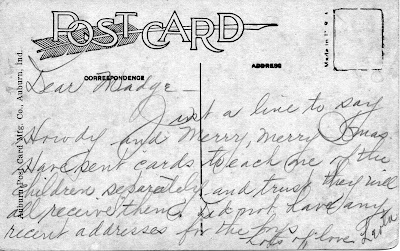 POST CARD
CORRESPONDENCE
ADDRESS
Made in U.S.A.
Auburn Post Card Mfg. Co., Auburn, Ind.
Dear Madge –
Just a line to say
Howdy and Merry, Merry Xmas
Have sent cards to each one of the
children separately and trust they will
all receive them. Did not have any
recent addresses for the boys.
Lots of love